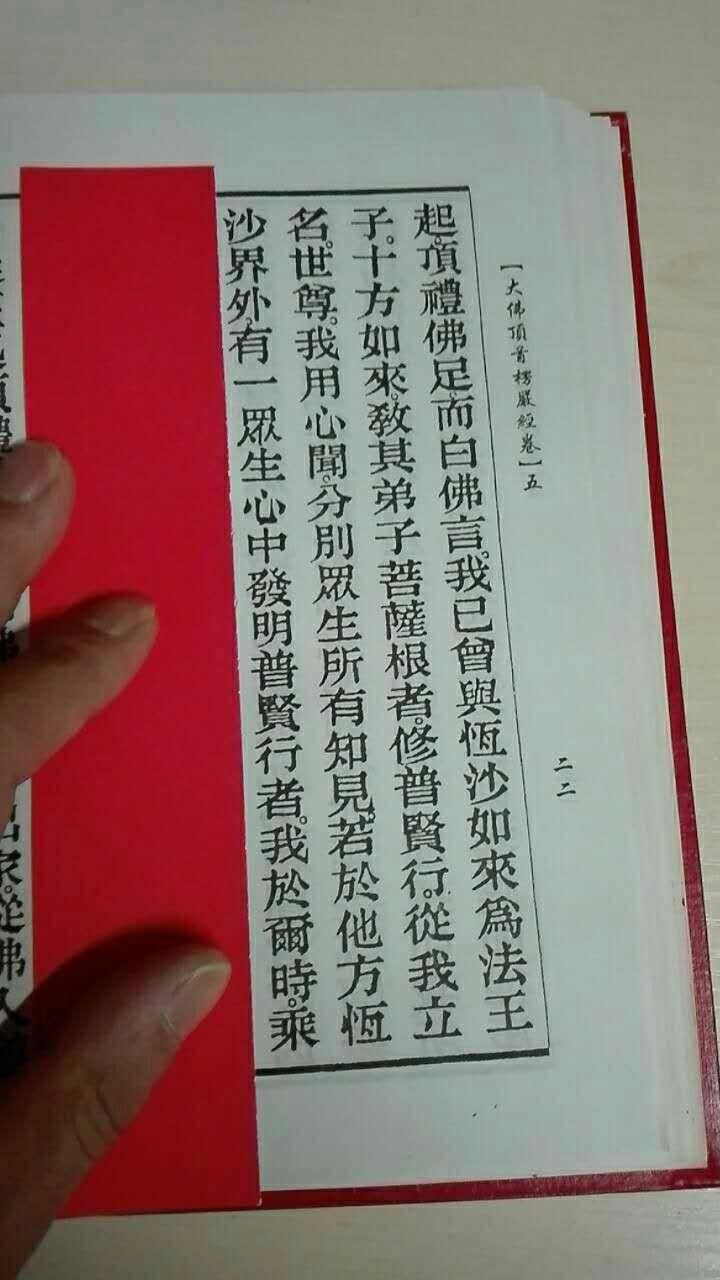 【大佛頂首楞嚴經卷】五
二二
起。頂禮佛足。而白佛言。我已曾與恆沙如來為法王
子。十方如來。教其弟子菩薩根者。修普賢行。從我立
名。世尊。我用心聞。分別眾生所有知見。若於他方恆
沙界外。有一眾生心中發明普賢行者。我於爾時。乘
家。從佛入